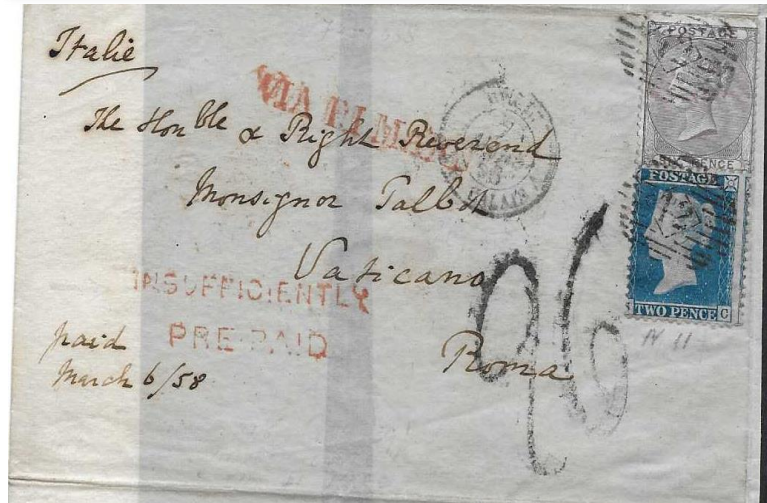 Italie
VIA DI
The Honble & Right Reverend
Monsignor Talbot
Vaticano
Roma
INSUFFICIENTLY
PRE-PAID
paid
March 6/58
26
POSTAGE
SIX PENCE
POSTAGE
TWO PENCE
G
CALAIS
N 11